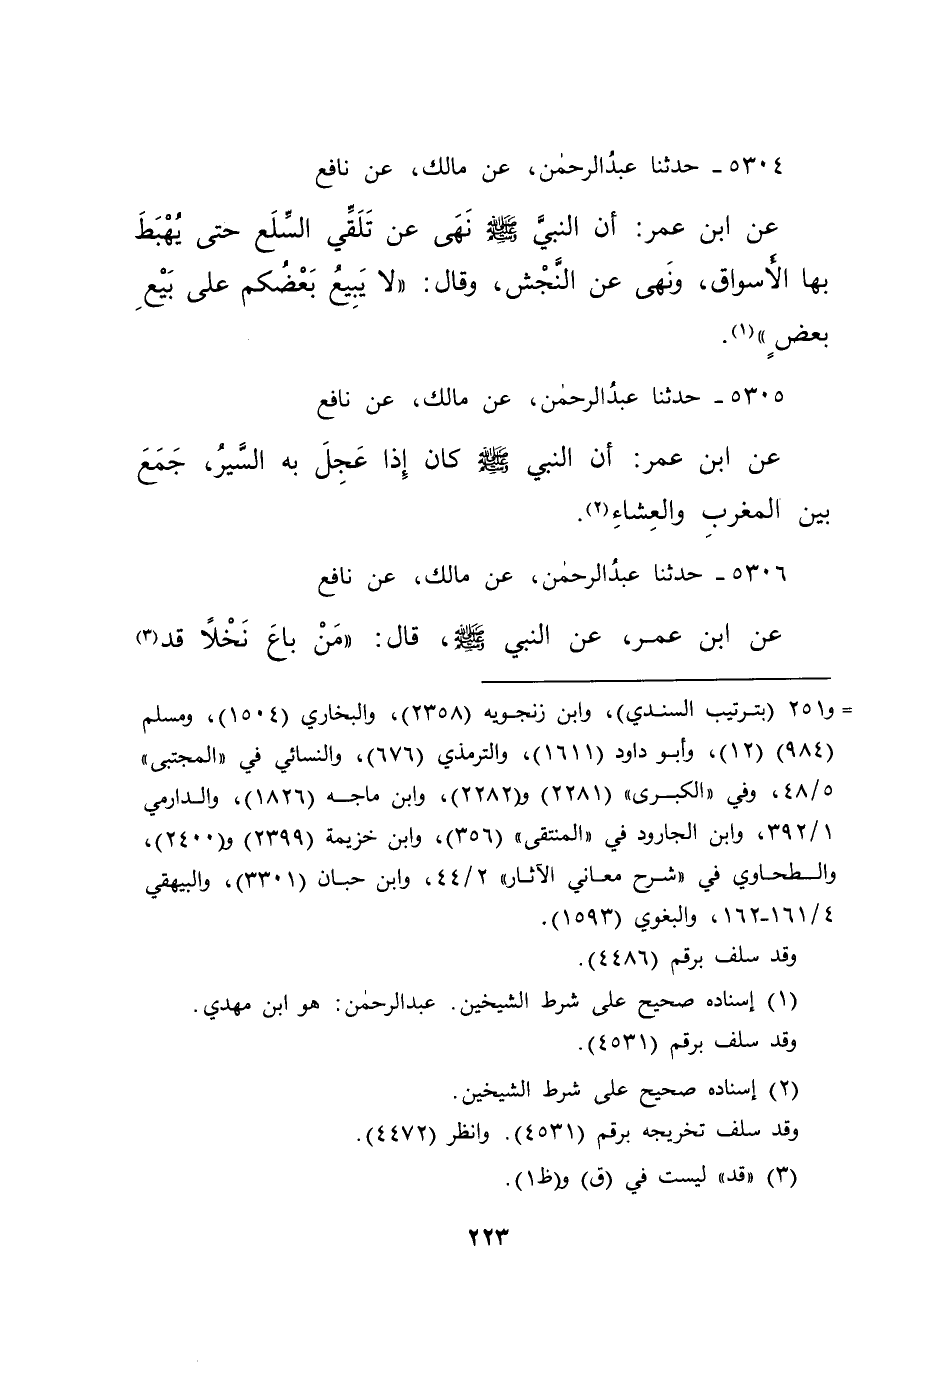 ٥٣٠٤ ـ حدثنا عبدُالرحمٰن، عن مالك، عن نافع
عن ابن عمر: أن النبيَّ ﷺ نَهَى عن تَلَقِّي السِّلَع حتى يُهْبَطَ
بها الأَسواق، ونَهى عن النَّجْش، وقال: «لا يَبِيعُ بَعْضُكم على بَيْعِ
بعضٍ»(١).
٥٣٠٥ ـ حدثنا عبدُالرحمٰن، عن مالك، عن نافع
عن ابن عمر: أن النبي ﷺ كان إِذا عَجِلَ به السَّيرُ، جَمَعَ
بين المغربِ والعِشاءِ(٢).
٥٣٠٦ ـ حدثنا عبدُالرحمٰن، عن مالك، عن نافع
عن ابن عمر، عن النبي ﷺ، قال: «مَنْ باعَ نَخْلًا قد(٣)
= و٢٥١ (بترتيب السندي)، وابن زنجويه (٢٣٥٨)، والبخاري (١٥٠٤)، ومسلم
(٩٨٤) (١٢)، وأبو داود (١٦١١)، والترمذي (٦٧٦)، والنسائي في «المجتبى»
٤٨/٥، وفي «الكبرى» (٢٢٨١) و(٢٢٨٢)، وابن ماجه (١٨٢٦)، والدارمي
٣٩٢/١، وابن الجارود في «المنتقى» (٣٥٦)، وابن خزيمة (٢٣٩٩) و(٢٤٠٠)،
والطحاوي في «شرح معاني الآثار» ٤٤/٢، وابن حبان (٣٣٠١)، والبيهقي
١٦١/٤-١٦٢، والبغوي (١٥٩٣).
وقد سلف برقم (٤٤٨٦).
(١) إسناده صحيح على شرط الشيخين. عبدالرحمٰن: هو ابن مهدي.
وقد سلف برقم (٤٥٣١).
(٢) إسناده صحيح على شرط الشيخين.
وقد سلف تخريجه برقم (٤٥٣١). وانظر (٤٤٧٢).
(٣) «قد» ليست في (ق) و(ظ١).
٢٢٣